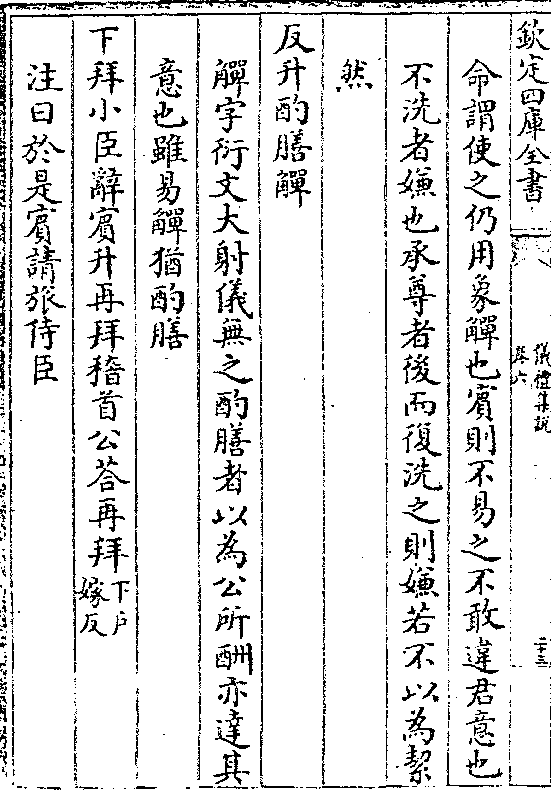 欽定四庫全書
儀禮集說
卷六
二十三
命謂使之仍用象觶也賓則不易之不敢違君意也
不洗者嫌也承尊者後而復洗之則嫌若不以為潔
然
反升酌膳觶
觶字衍文大射儀無之酌膳者以為公所酬亦達其
意也雖易觶猶酌膳
下拜小臣辭賓升再拜稽首公荅再拜下戶嫁反
注曰於是賓請旅侍臣